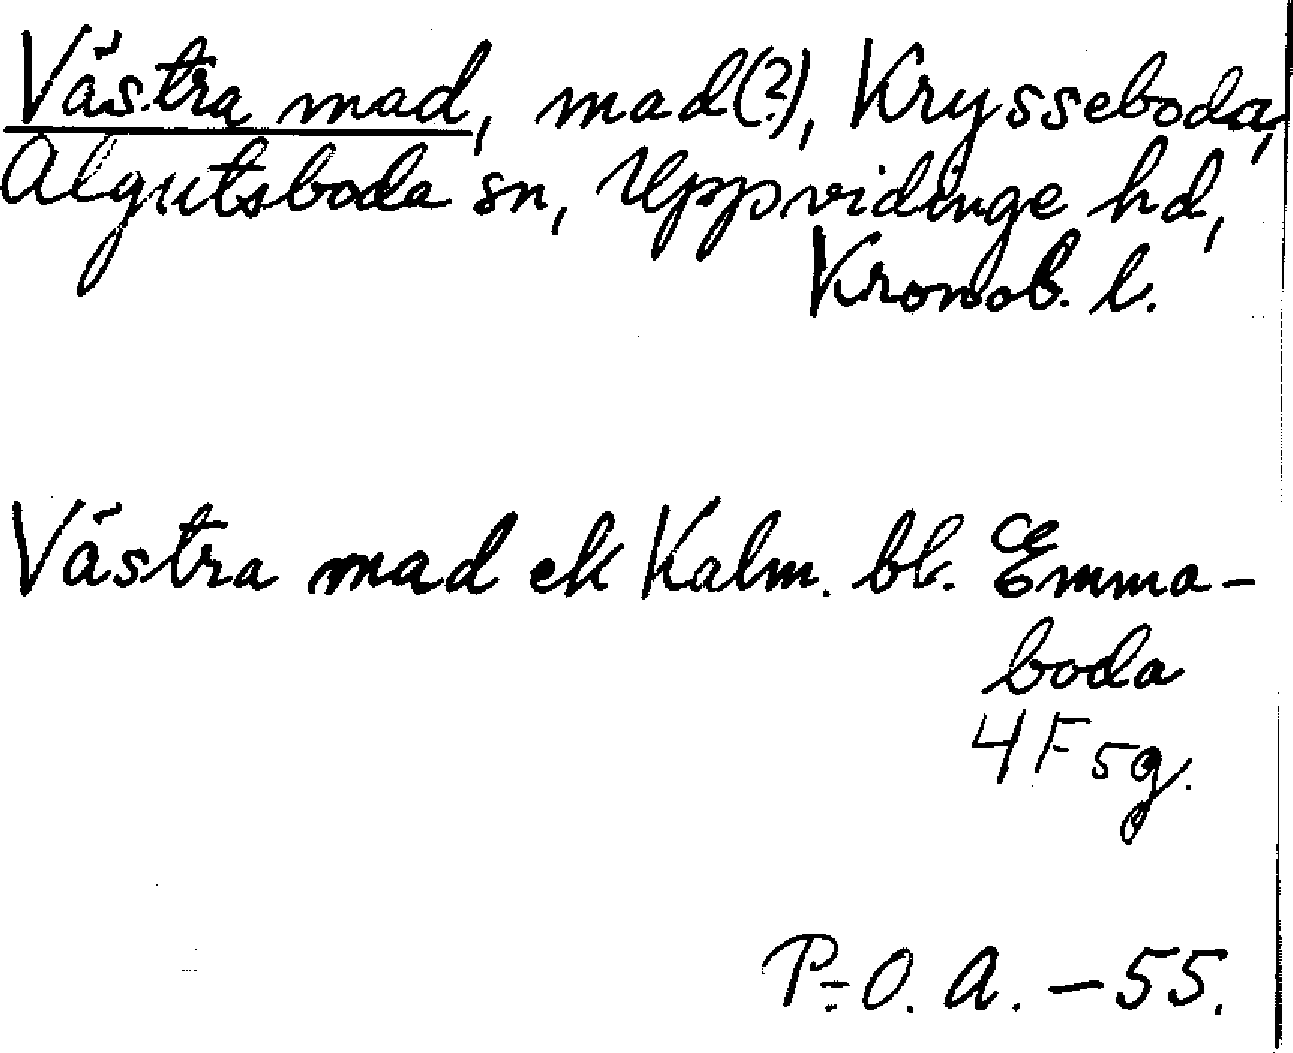 Västra mad, mad(?), Krysseboda,
Algutsboda sn, Uppvidinge hd,
Kronob. l.
Västra mad ek Kalm. bl. Emma-
boda
4F5g.
P-O. A. - 55.